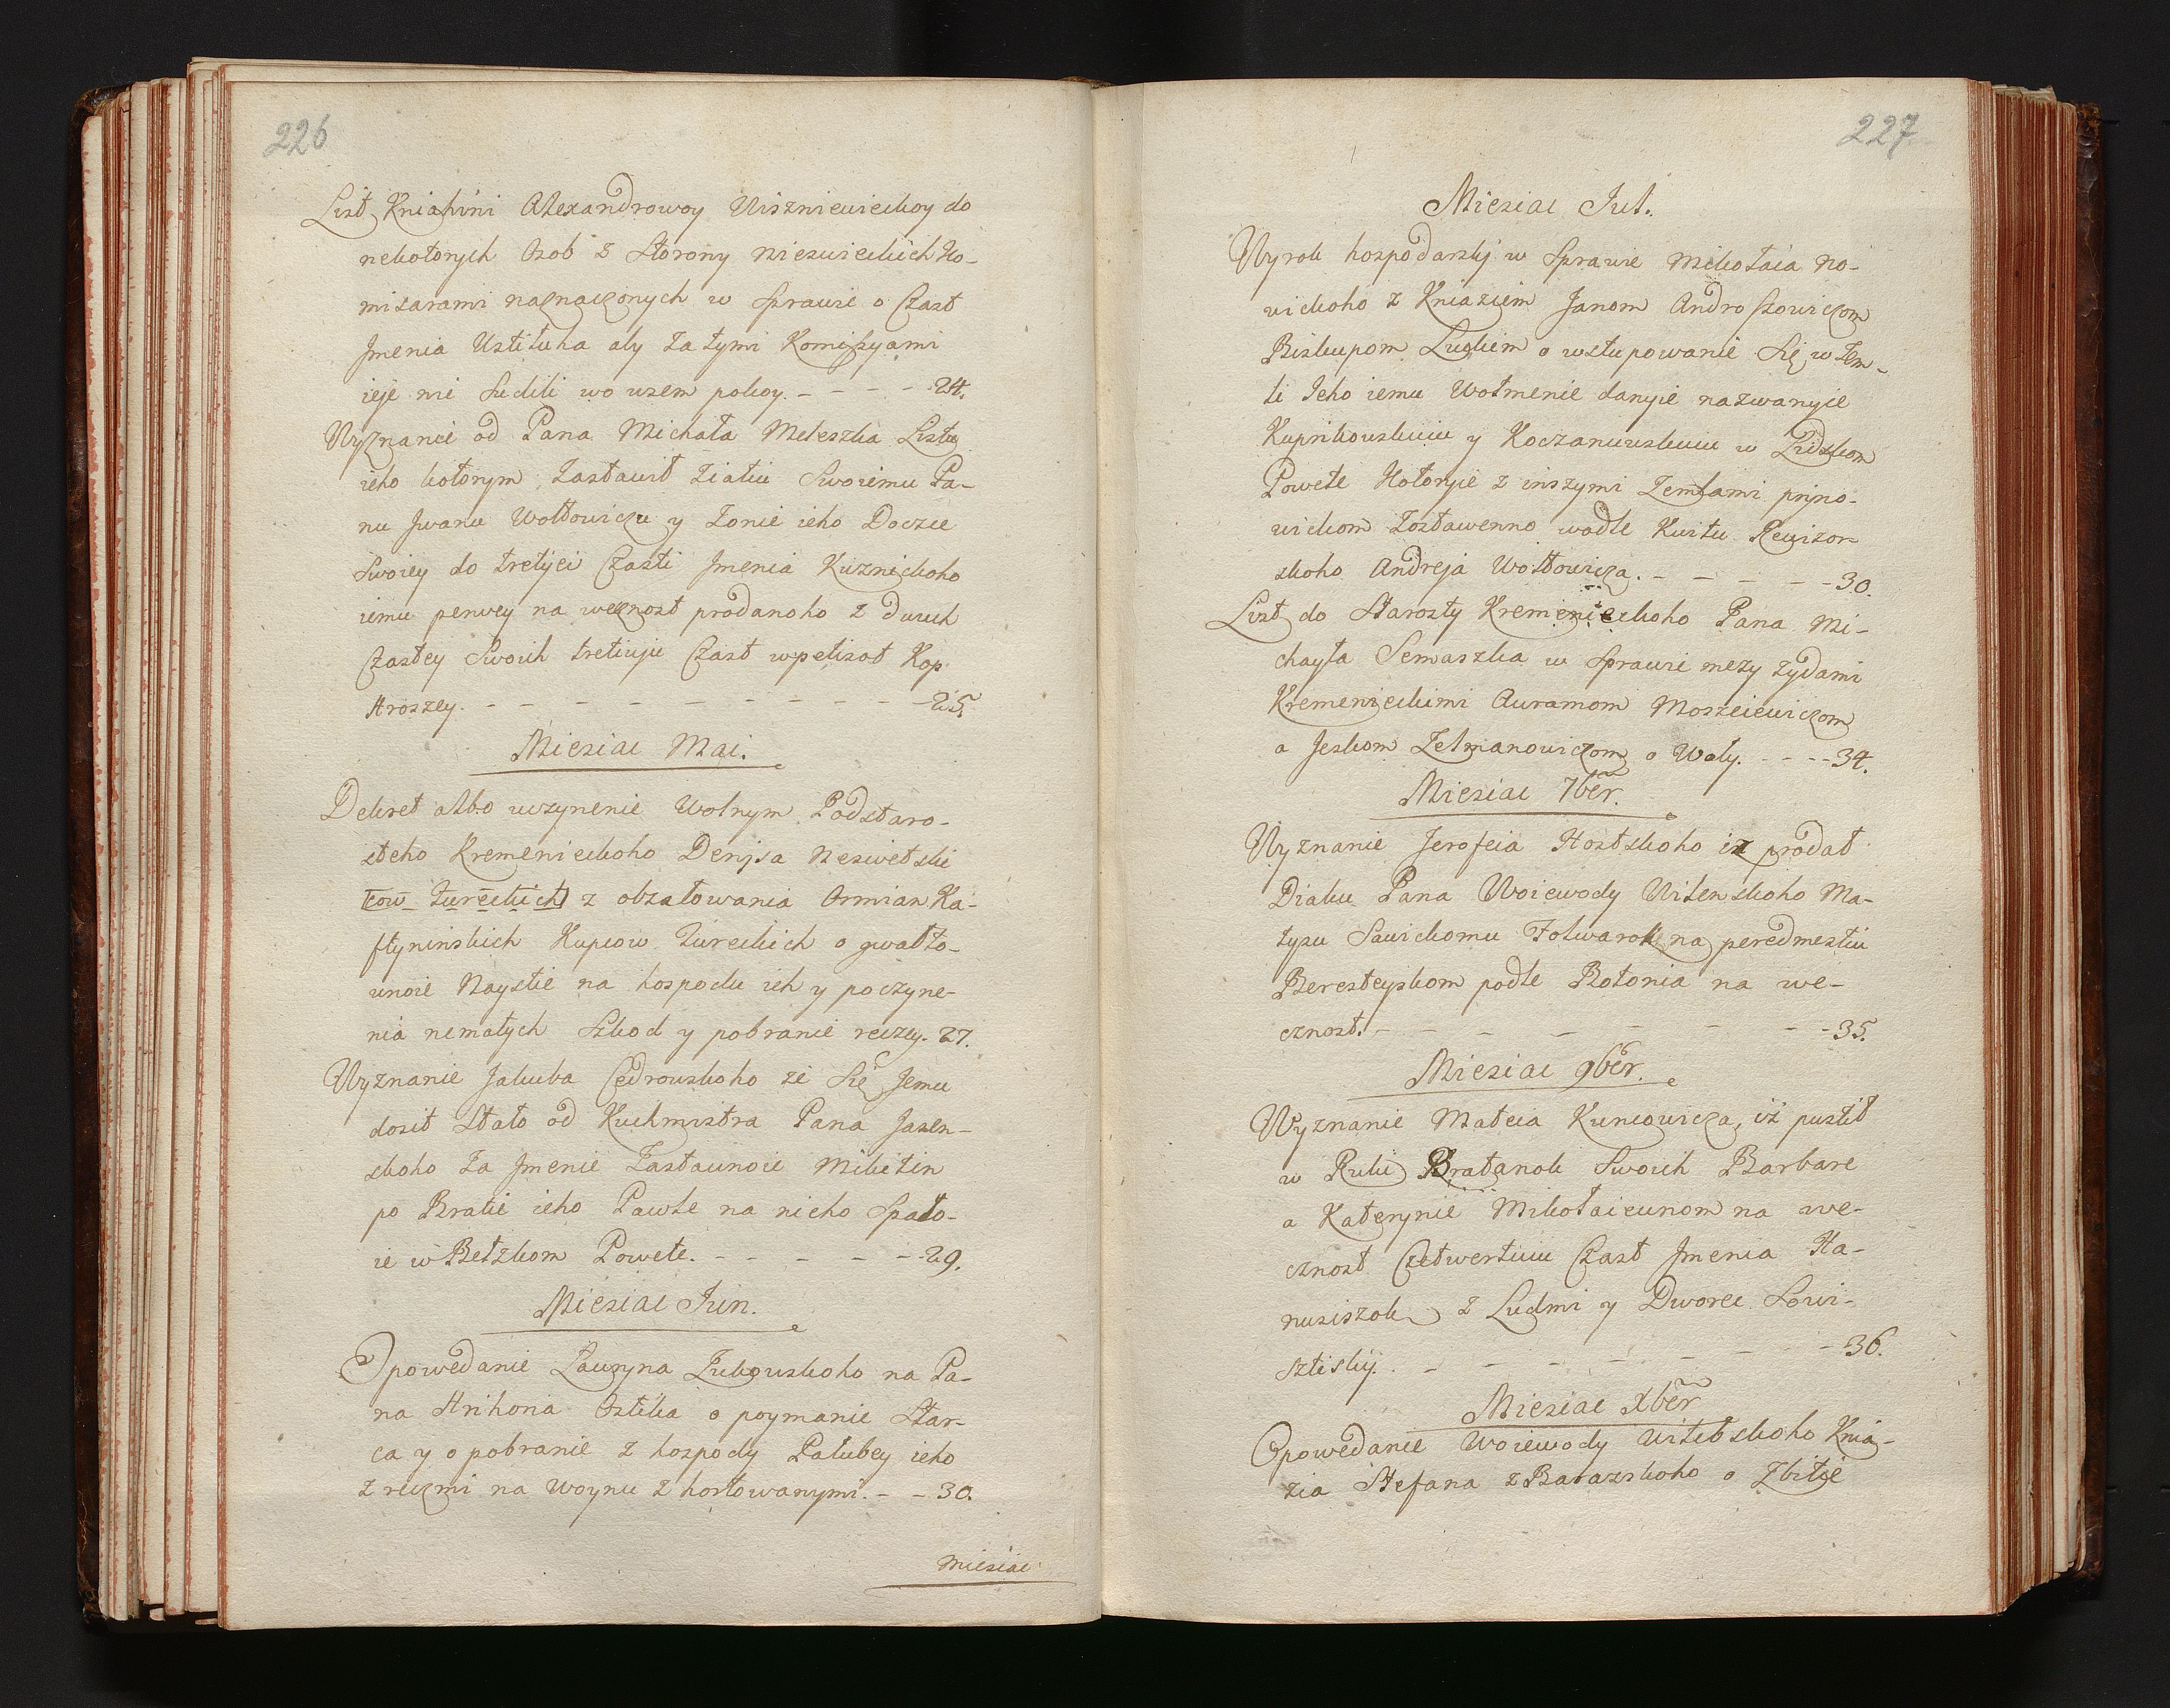 226
List Kniahini Alexandrowoy Wiszniewieckoy do
nekotorych Osob z Storony Nieswieckich Ko-
misarami naznaczonych w Sprawie o Czast
Jmenia Ustiluha aby za tymi Komissyami
ieje nie Sudili wo wsem pokoy. - - - 24.
Wyznanie od Pana Michała Meleszka Listu
ieho kotorym Zastawił Ziatiu Swoiemu Pa-
nu Jwanu Wołłowiczu y Zonie ieho Doczce
Swoiey do tretijei Czasti Jmenia Kuznickoho
iemu perwey na wecznost prodanoho z dwuch
Czastey Swoich tretiuju Czast w petisot Kop
Hroszey. - - - - - - - - - - 25.
Miesiac Mai.
Dekret albo uczynenie Wolnym Podstaro-
steho Kremenieckoho Denysa Neswetski
cow Tureckich z obzałowania Ormian Ka-
ffyninskich Kupcow Tureckich o gwałto-
wnoie Naystie na hospodu ich y poczyne-
nia nemałych Szkod y pobranie reczey. 27.
Wyznanie Jakuba Cedrowskoho ze Się Jemu
dosit Stało od Kuchmistra Pana Jasen-
skoho za Jmenie Zastawnoie Mikitin
po Bratie ieho Pawle na nieho Spało-
ie w Bełzkom Powete. - - - - - 29.
Miesiac Jun.
Opowedanie Ławryna Zukowskoho na Pa-
na Hrihoria Ostika o poymanie Star-
ca y o pobranie z hospody Pałubey ieho
z reczmi na Woynu z hortowanymi. - - 30.
Miesiac
227
Miesiac Jul.
Wyrok hospodarskij w Sprawie Mikołaia No-
wickoho z Kniaziem Janom Androszowiczom
Biskupom Luckim o wstupowanie Się w Zem-
li Jeho iemu Wotmenie danyie nazwanyie
Kuprikowskuiu y Koczanowskuiu w Lidzkom
Powete Kotoryie z inszymi Zemlami prijno-
wickom Zostawenno wodle Kwitu Rewizor-
skoho Andreja Wołłowicza. - - - - - 30.
List do Starosty Kremenieckoho Pana Mi-
chayła Semaszka w Sprawie mezy Zydami
Kremenieckimi Awramom Moszeiewiczom
a Jeskom Zelmanowiczom o Woły. - - - - 34.
Miesiac 7ber.
Wyznanie Jerofeia Hostskoho iz prodał
Diaku Pana Woiewody Wilenskoho Ma-
tysu Sawickomu Folwarok na peredmestiu
Beresteyskom podle Bołonia na we-
cznost. - - - - - - - - 35.
Miesiac 9ber.
Wyznanie Mateia Kuncowicza, iż pustił
w Ruki Bratanok Swoich Barbare
a Katerynie Mikołaiewnom na we-
cznost Czetwertuiu Czast Jmenia Ha-
nusiszok z Ludmi y Dworec Łowi-
sztiskij. - - - - - - - 36.
Miesiac Xber
Opowedanie Woiewody Witebskoho Knia-
zia Stefana z Barazskoho o Zbitie